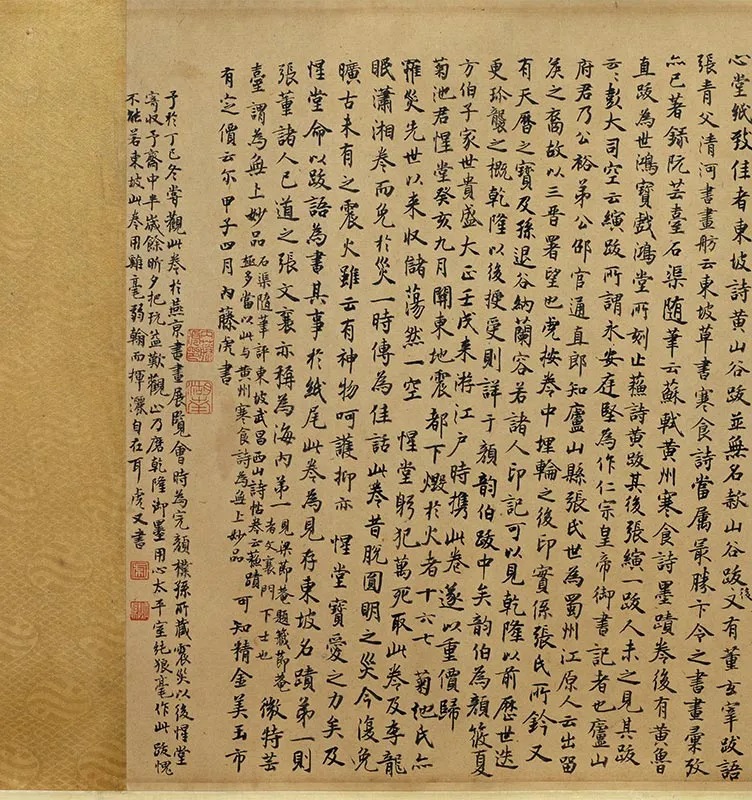 心堂紙致佳者東坡詩黃山谷跋並無名款山谷跋後又有董玄宰跋語
張青父清河書畫舫云東坡草書寒食詩當屬最勝卞令之書畫彙攷
亦已著錄阮芸臺石渠隨筆云蘇軾黃州寒食詩墨蹟卷後有黃魯
直跋為世鴻寶戲鴻堂所刻止蘇詩黃跋其後張縯一跋人未之見其跋
云〻彭大司空云縯跋所謂永安庭堅為作仁宗皇帝御書記者也廬山
府君乃公裕弟公邵官通直郎知廬山縣張氏世為蜀州江原人云出留
矦之裔故以三晉署望也虎按卷中埋輪之後印實係張氏所鈐又
有天曆之寶及孫退谷納蘭容若諸人印記可以見乾隆以前歷世迭
更珍襲之概乾隆以後授受則詳于顏韵伯跋中矣韵伯為顏筱夏
方伯子家世貴盛大正壬戌来游江户時攜此卷遂以重價歸
菊池君惺堂癸亥九月關東地震都下燬於火者十六七　菊池氏亦
罹災先世以来收儲蕩然一空　惺堂躬犯萬死取此卷及李龍
眠瀟湘卷而免於災一時傳為佳話此卷昔脫圓明之災今復免
曠古未有之震火雖云有神物呵護抑亦　惺堂寶愛之力矣及
惺堂命以跋語為書其事於紙尾此卷為見存東坡名蹟第一則
張董諸人已道之張文襄亦稱為海內第一見梁節菴題籤節菴者文襄門下士也微特芸
臺謂為無上妙品石渠隨筆評東坡武昌西山詩帖卷云蘇蹟極多當以此與黃州寒食詩為無上妙品可知精金美玉市
有定價云尔甲子四月內藤虎書
予於丁巳冬嘗觀此卷於燕京書畫展覽會時為完顏樸孫所藏震災以後惺堂
寄收予齋中半歲餘昕夕把玩益歎觀止乃磨乾隆御墨用心太平室純狼毫作此跋愧
不能若東坡此卷用雞毫弱翰而揮灑自在耳虎又書